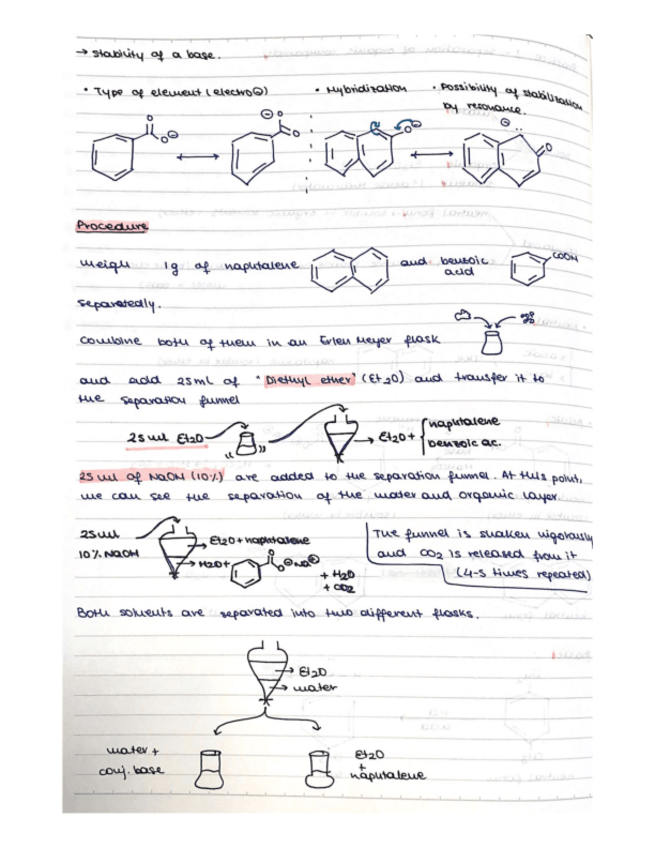 → stability of a base.
• Type of element (electro⊖) • Hybridization • Possibility of stabilization
by resonance.
O O⊖ ⊖O O O⊖ ⊖ O
Procedure
weigh 1g of naphtalene and benzoic acid COOH
separatedly.
combine both of them in an Erlen Meyer flask
and add 25ml of "Diethyl ether" (Et2O) and transfer it to
the separation funnel
25 ml Et2O → Et2O + { naphtalene
benzoic ac.
25 ml of NaOH (10%) are added to the separation funnel. At this point,
we can see the separation of the water and organic layer.
25 ml
10% NaOH
→ Et2O + naphtalene
→ H2O + O O⊖ Na⊕
+ H2O
+ CO2
The funnel is shaken vigorously
and CO2 is released from it
(4-5 times repeated)
Both solvents are separated into two different flasks.
→ Et2O
→ water
water +
conj. base
Et2O
+
naphtalene